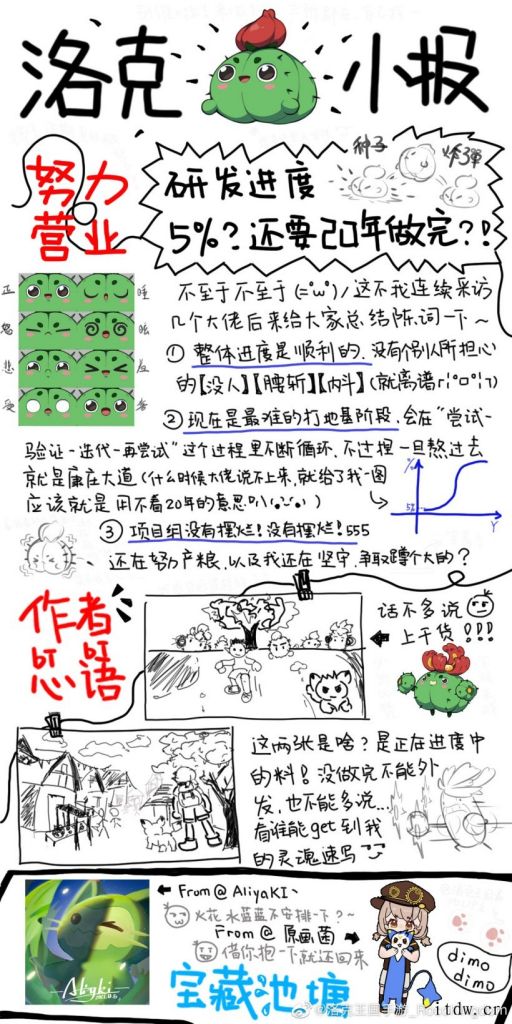 洛克小报
种子
炸弹
努力
营业
研发进度
5%?还要20年做完?!
不至于不至于(="ω")/这不我连续采访
几个大佬后来给大家总结陈词一下~
① 整体进度是顺利的.没有个别人所担心
的【没人】【腰斩】【内斗】(就离谱
② 现在是最难的打地基阶段.会在“尝试-
验证-迭代-再尝试”这个过程里不断循环.不过捏一旦熬过去
就是康庄大道(什么时候大佬说不上来.就给了我一图
应该就是用不着20年的意思叭
%
5%
Y
③ 项目组没有摆烂!没有摆烂!555
还在努力产粮.以及我还在坚守.争取蹲个大的?
作者
的
心语
话不多说
上干货!!!
这两张是啥?是正在进度中
的料!没做完不能外
发,也不能多说...
看谁能get到我
的灵魂速写
From@AliyaKI、
火花水蓝蓝不安排一下?~
From@原画菌
借你抱一下就还回来
宝藏池塘
dimo
dimo
Aliyki
@洛克王国手游
itdw.cn